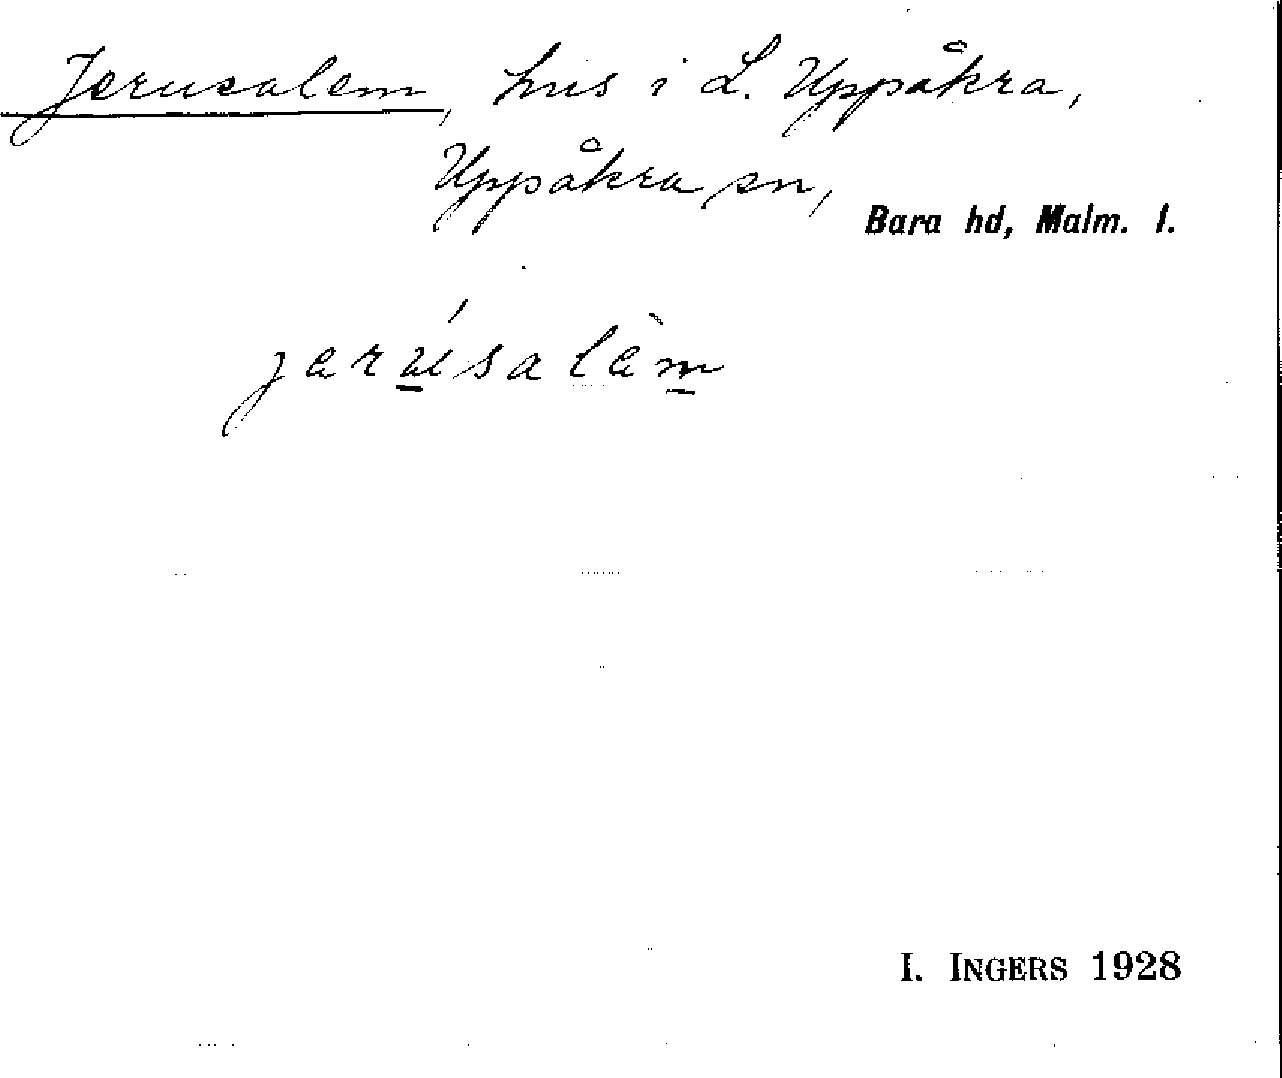 Jerusalem, hus i L. Uppåkra,
Uppåkra sn,
Bara hd, Malm. l.
jerúsalèm
I. INGERS 1928